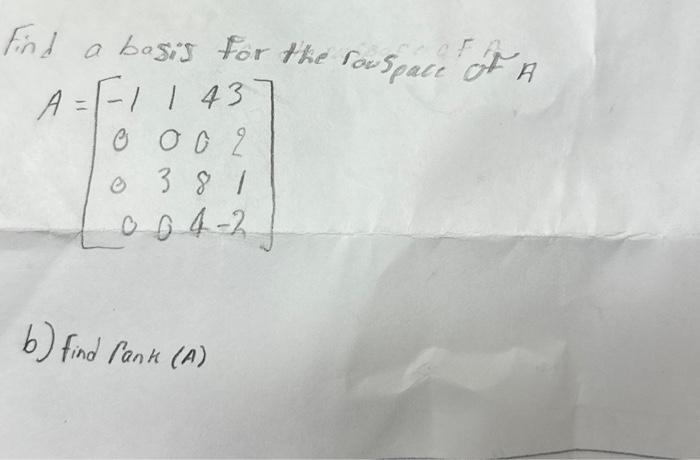 Find a basis for the rowspace of A
A = [-1 1 4 3
0 0 0 2
0 3 8 1
0 0 4 -2]
b) find Rank (A)